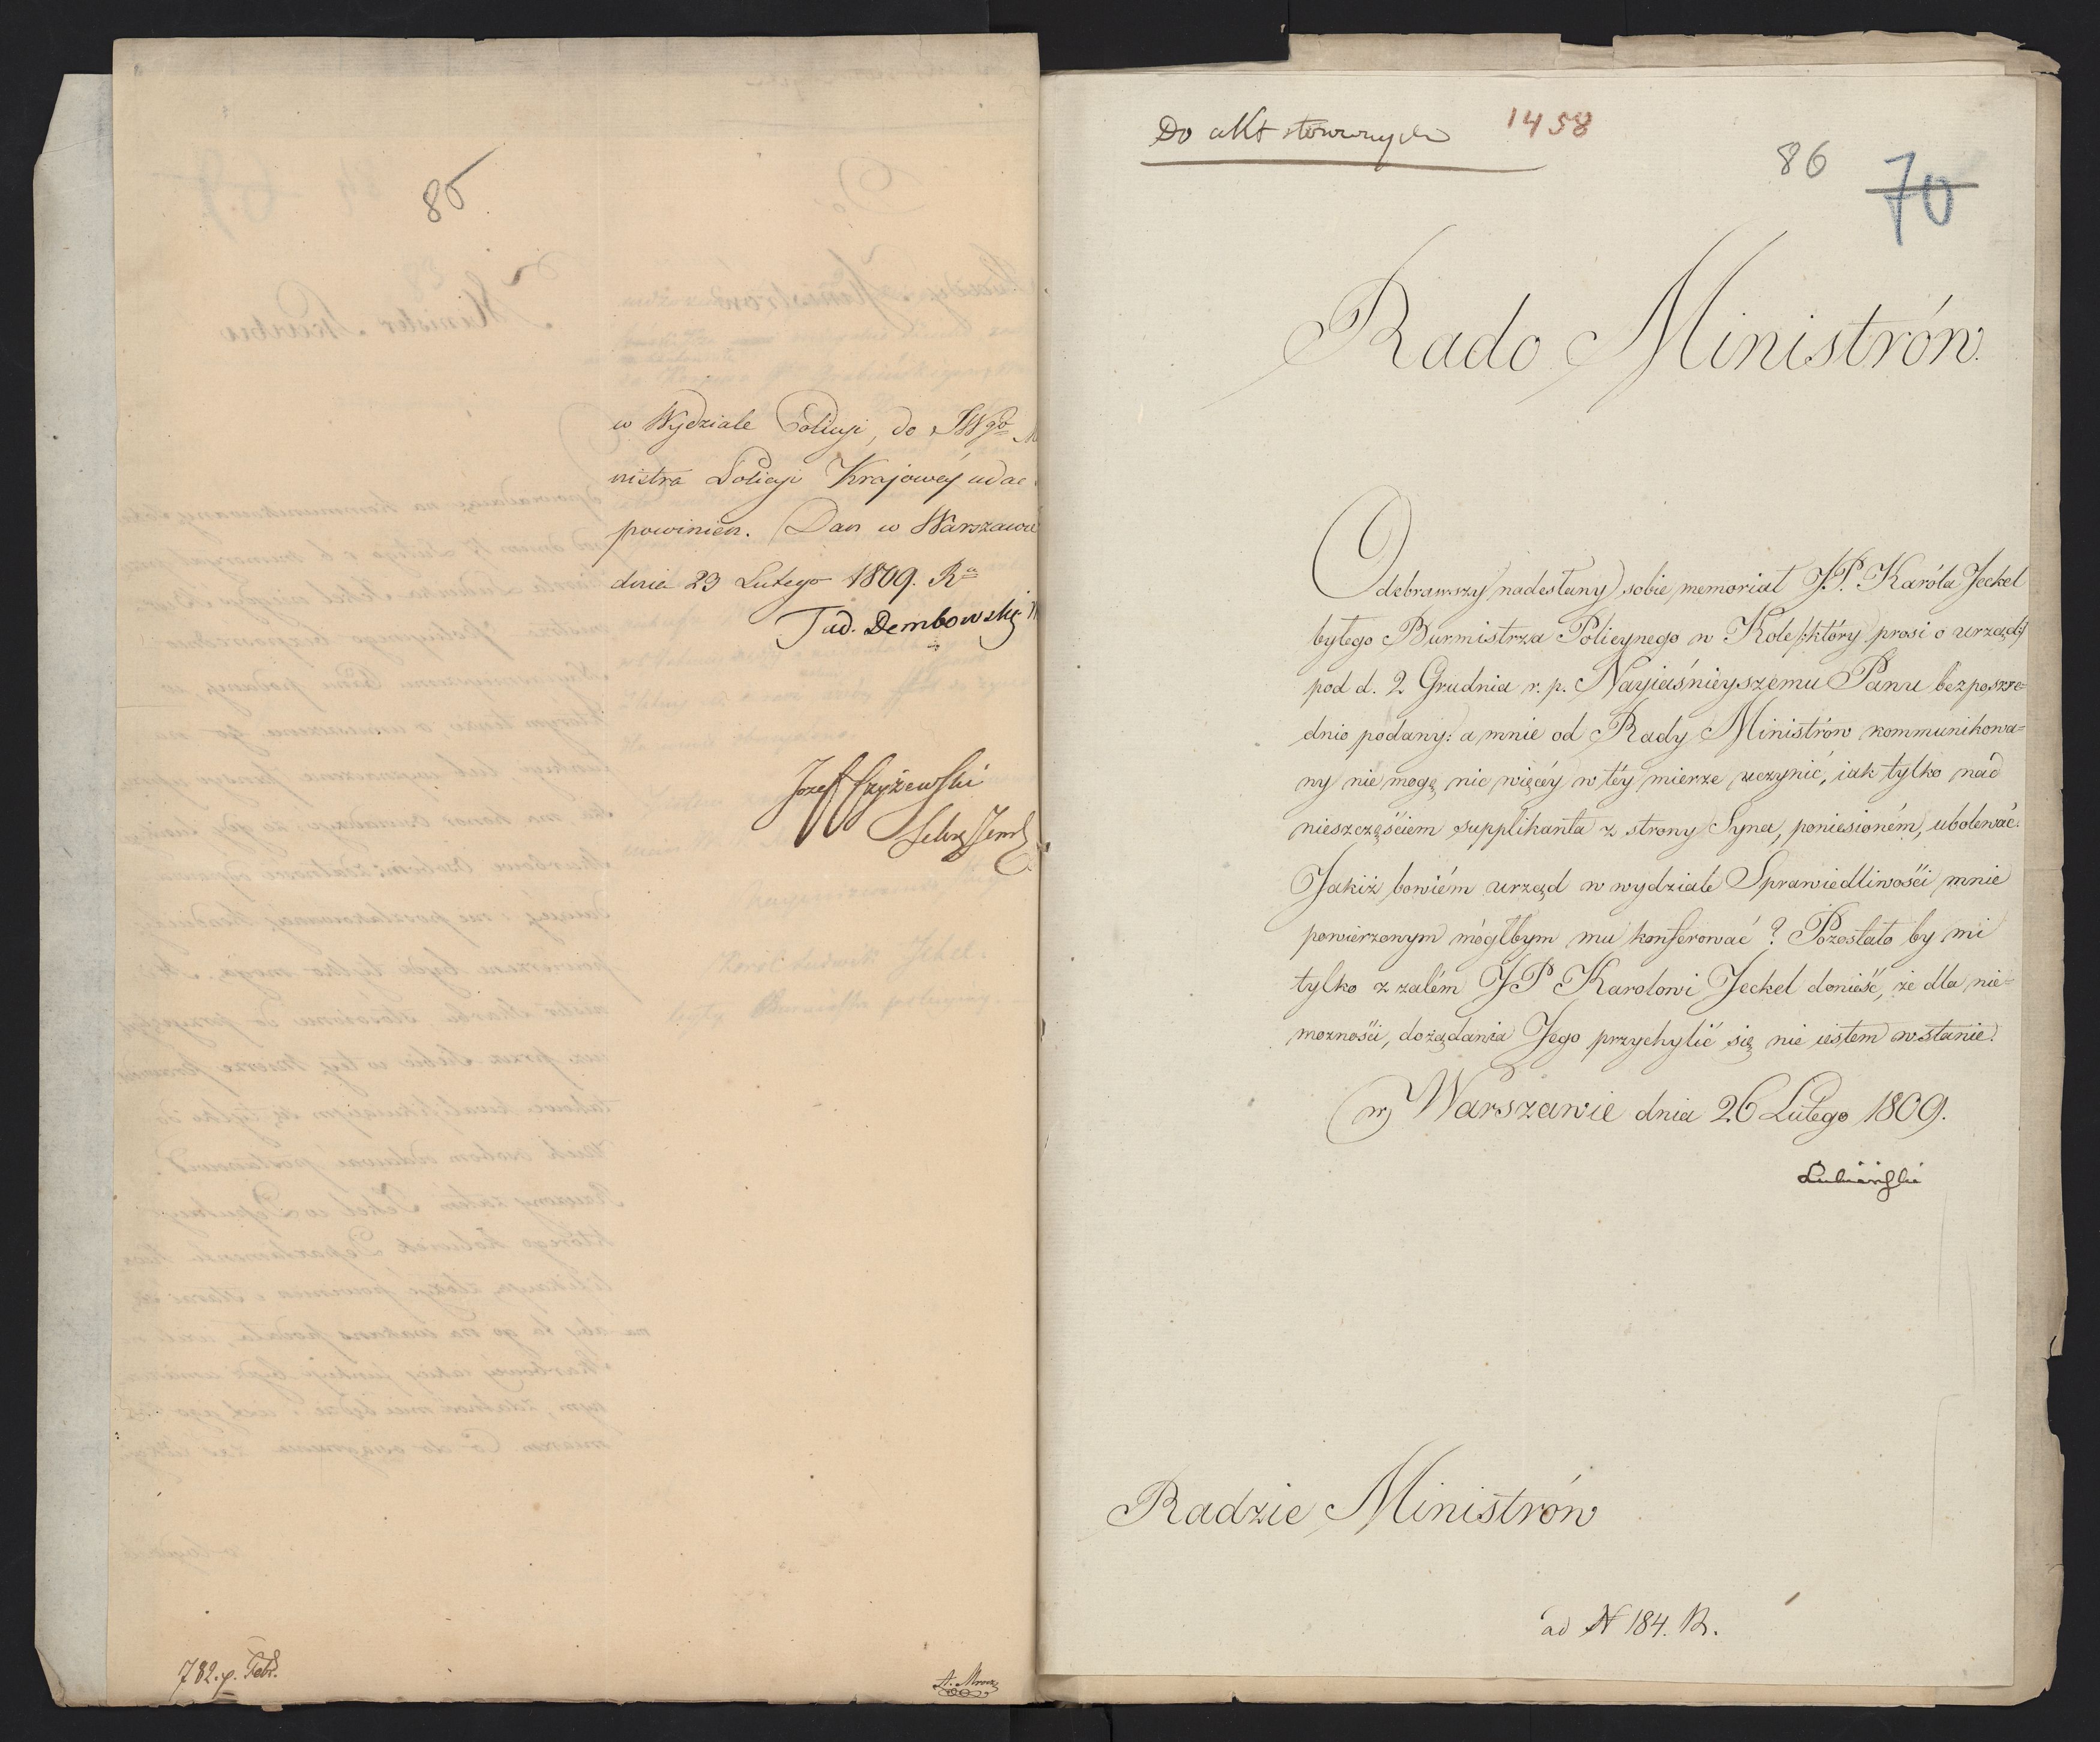 85
w Wydziale Policyi, do JWgo M
nistra Policyi Krajowéy udać
powinien. Dan w Warszawie
dnia 23 Lutego 1809. Ra
Tad. Dembowski M
Jozef Szyżewski
Sekr. Jenl
782. p. Febr.
A. Mroz
Do akt stosownych
1458
86
70
Rado Ministrów.
Odebrawszy nadesłany sobie memoriał J.P. Karóla Jeckel
byłego Burmistrza Policynego w Kole /:który prosi o urząd:/
pod d. 2 Grudnia r. p. Nayiaśnieyszemu Panu bezposzre=
dnio podany: a mnie od Rady Ministrów kommunikowa=
ny nie mogę nic więcéy w téy mierze uczynić, iak tylko nad
nieszczęściem supplikanta z strony Syna, poniesioném, ubolewać.
Jakiż bowiém urząd w wydziale Sprawiedliwości mnie
powierzonym mógłbym mu konferować? Pozostało by mi
tylko z zalém JP Karolowi Jeckel donieść, że dla nie=
możności, do żądania Jego przychylić się nie iestem w stanie.
w Warszawie dnia 26 Lutego 1809.
Łubieński
Radzie Ministrów
ad N 184. R.